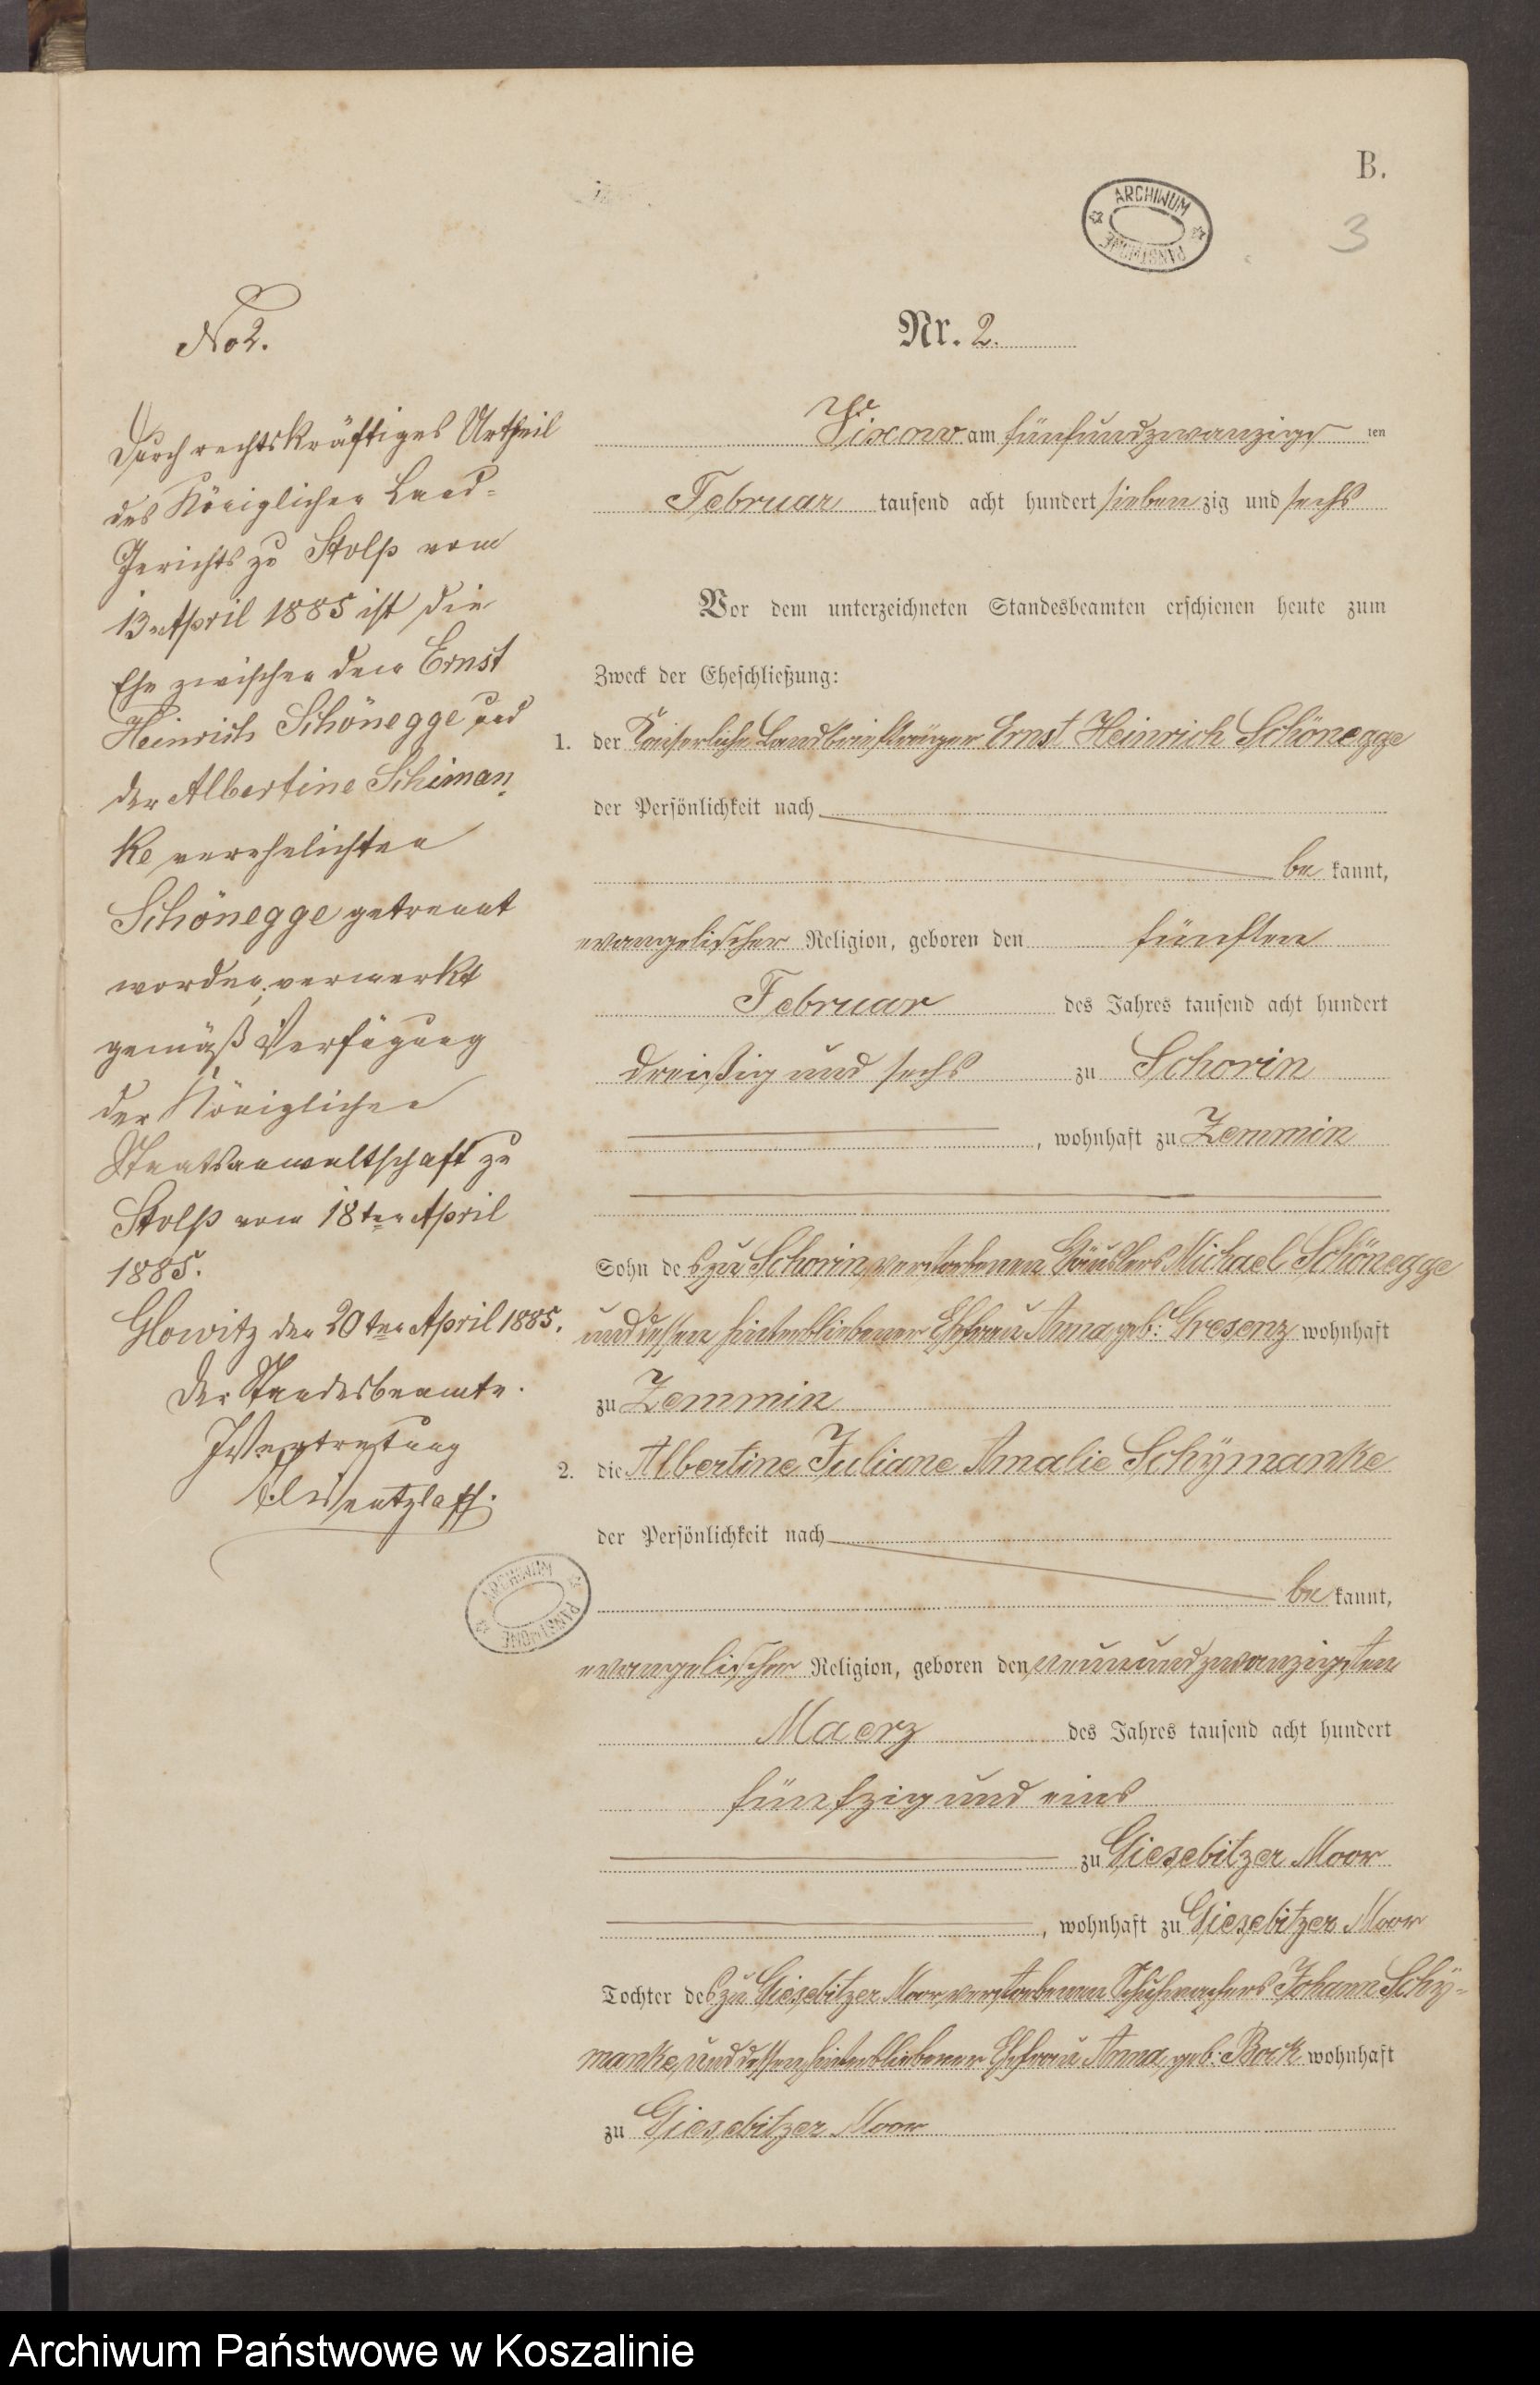 B.
ARCHIWUM
PAŃSTWOWE
3
No 2.
Durch rechtskräftiges Urtheil
des Königlichen Land-
Gerichts zu Stolp vom
13 April 1885 ist die
Ehe zwischen dem Ernst
Heinrich Schönegge und
der Albertine Schiman
ke verehelichten
Schönegge getrennt
worden, vermerkt
gemäß Verfügung
der Königlichen
Staatsanwaltschaft zu
Stolp vom 18ten April
1885.
Glowitz den 20ten April 1885.
Der Standesbeamte.
In Vertretung
Wentzlaff.
ARCHIWUM
PAŃSTWOWE
Nr. 2.
Vixow am fünfundzwanzigs ten
Februar tausend acht hundert siebenzig und sechs
Vor dem unterzeichneten Standesbeamten erschienen heute zum
Zweck der Eheschließung:
1. der Kaiserliche Landbriefträger Ernst Heinrich Schönegge
der Persönlichkeit nach
be kannt,
evangelischer Religion, geboren den fünften
Februar des Jahres tausend acht hundert
dreißig und sechs zu Schorin
, wohnhaft zu Zemmin
Sohn des zu Schorin verstorbenen Häuslers Michael Schönegge
und dessen hinterbliebener Ehefrau Anna, geb: Gresenz wohnhaft
zu Zemmin
2. die Albertine Juliane Amalie Schÿmanke
der Persönlichkeit nach
be kannt,
evangelischer Religion, geboren den neunundzwanzigsten
Maerz des Jahres tausend acht hundert
fünfzig und eins
zu Giesebitzer Moor
, wohnhaft zu Giesebitzer Moor
Tochter des zu Giesebitzer Moor verstorbenen Schuhmachers Johann Schÿ-
manke, und dessen hinterbliebener Ehefrau Anna, geb: Bock wohnhaft
zu Giesebitzer Moor
Archiwum Państwowe w Koszalinie